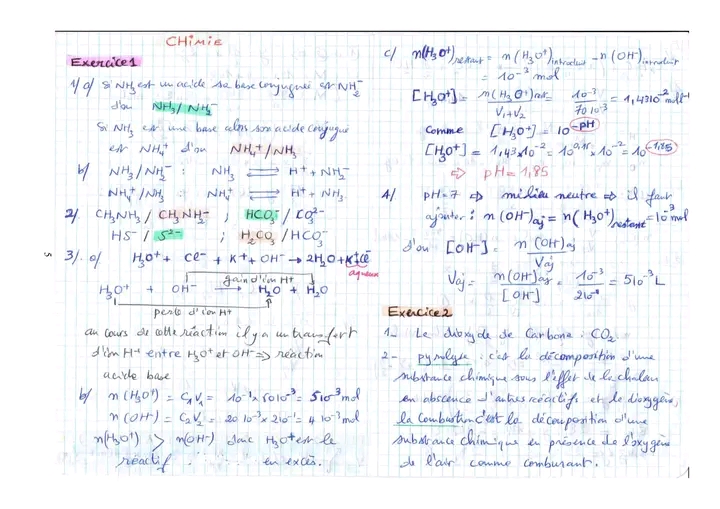 CHIMIE
Exercice 1
1/ a/ Si NH3 est un acide sa base conjuguée est NH2-
d'où NH3/NH2-
Si NH3 est une base alors son acide conjugué
est NH4+ d'où NH4+/NH3
b/ NH3/NH2- : NH3 ⇌ H+ + NH2-
NH4+/NH3 : NH4+ ⇌ H+ + NH3
2/ CH3NH2 / CH3NH- ; HCO3- / CO3^2-
HS- / S^2- ; H2CO3 / HCO3-
3/. a/ H3O+ + Cl- + K+ + OH- → 2H2O + K+ + Cl-
aqueux
gain d'ion H+
H3O+ + OH- → H2O + H2O
perte d'ion H+
au cours de cette réaction il y a un transfert
d'ion H+ entre H3O+ et OH- ⇒ réaction
acide base
b/ n(H3O+) = C1V1 = 10^-1 x 50 10^-3 = 5 10^-3 mol
n(OH-) = C2V2 = 20 10^-3 x 2 10^-1 = 4 10^-3 mol
n(H3O+) > n(OH-) donc H3O+ est le
réactif en excès.
c/ n(H3O+)restant = n(H3O+)introduit - n(OH-)introduit
= 10^-3 mol
[H3O+] = n(H3O+)rest / V1+V2 = 10^-3 / 70 10^-3 = 1,43 10^-2 mol L^-1
Comme [H3O+] = 10^-pH
[H3O+] = 1,43 x 10^-2 = 10^0,15 x 10^-2 = 10^-1,85
⇒ pH = 1,85
4/ pH = 7 ⇒ milieu neutre ⇒ il faut
ajouter : n(OH-)aj = n(H3O+)restant = 10^-3 mol
d'où [OH-] = n(OH-)aj / Vaj
Vaj = n(OH-)aj / [OH-] = 10^-3 / 2 10^-1 = 5 10^-3 L
Exercice 2
1_ Le dioxyde de Carbone : CO2
2- pyrolyse : c'est la décomposition d'une
substance chimique sous l'effet de la chaleur
en absence d'autres réactifs et de dioxygène,
la Combustion c'est la décomposition d'une
substance chimique en présence de l'oxygène
de l'air comme comburant.
5
1